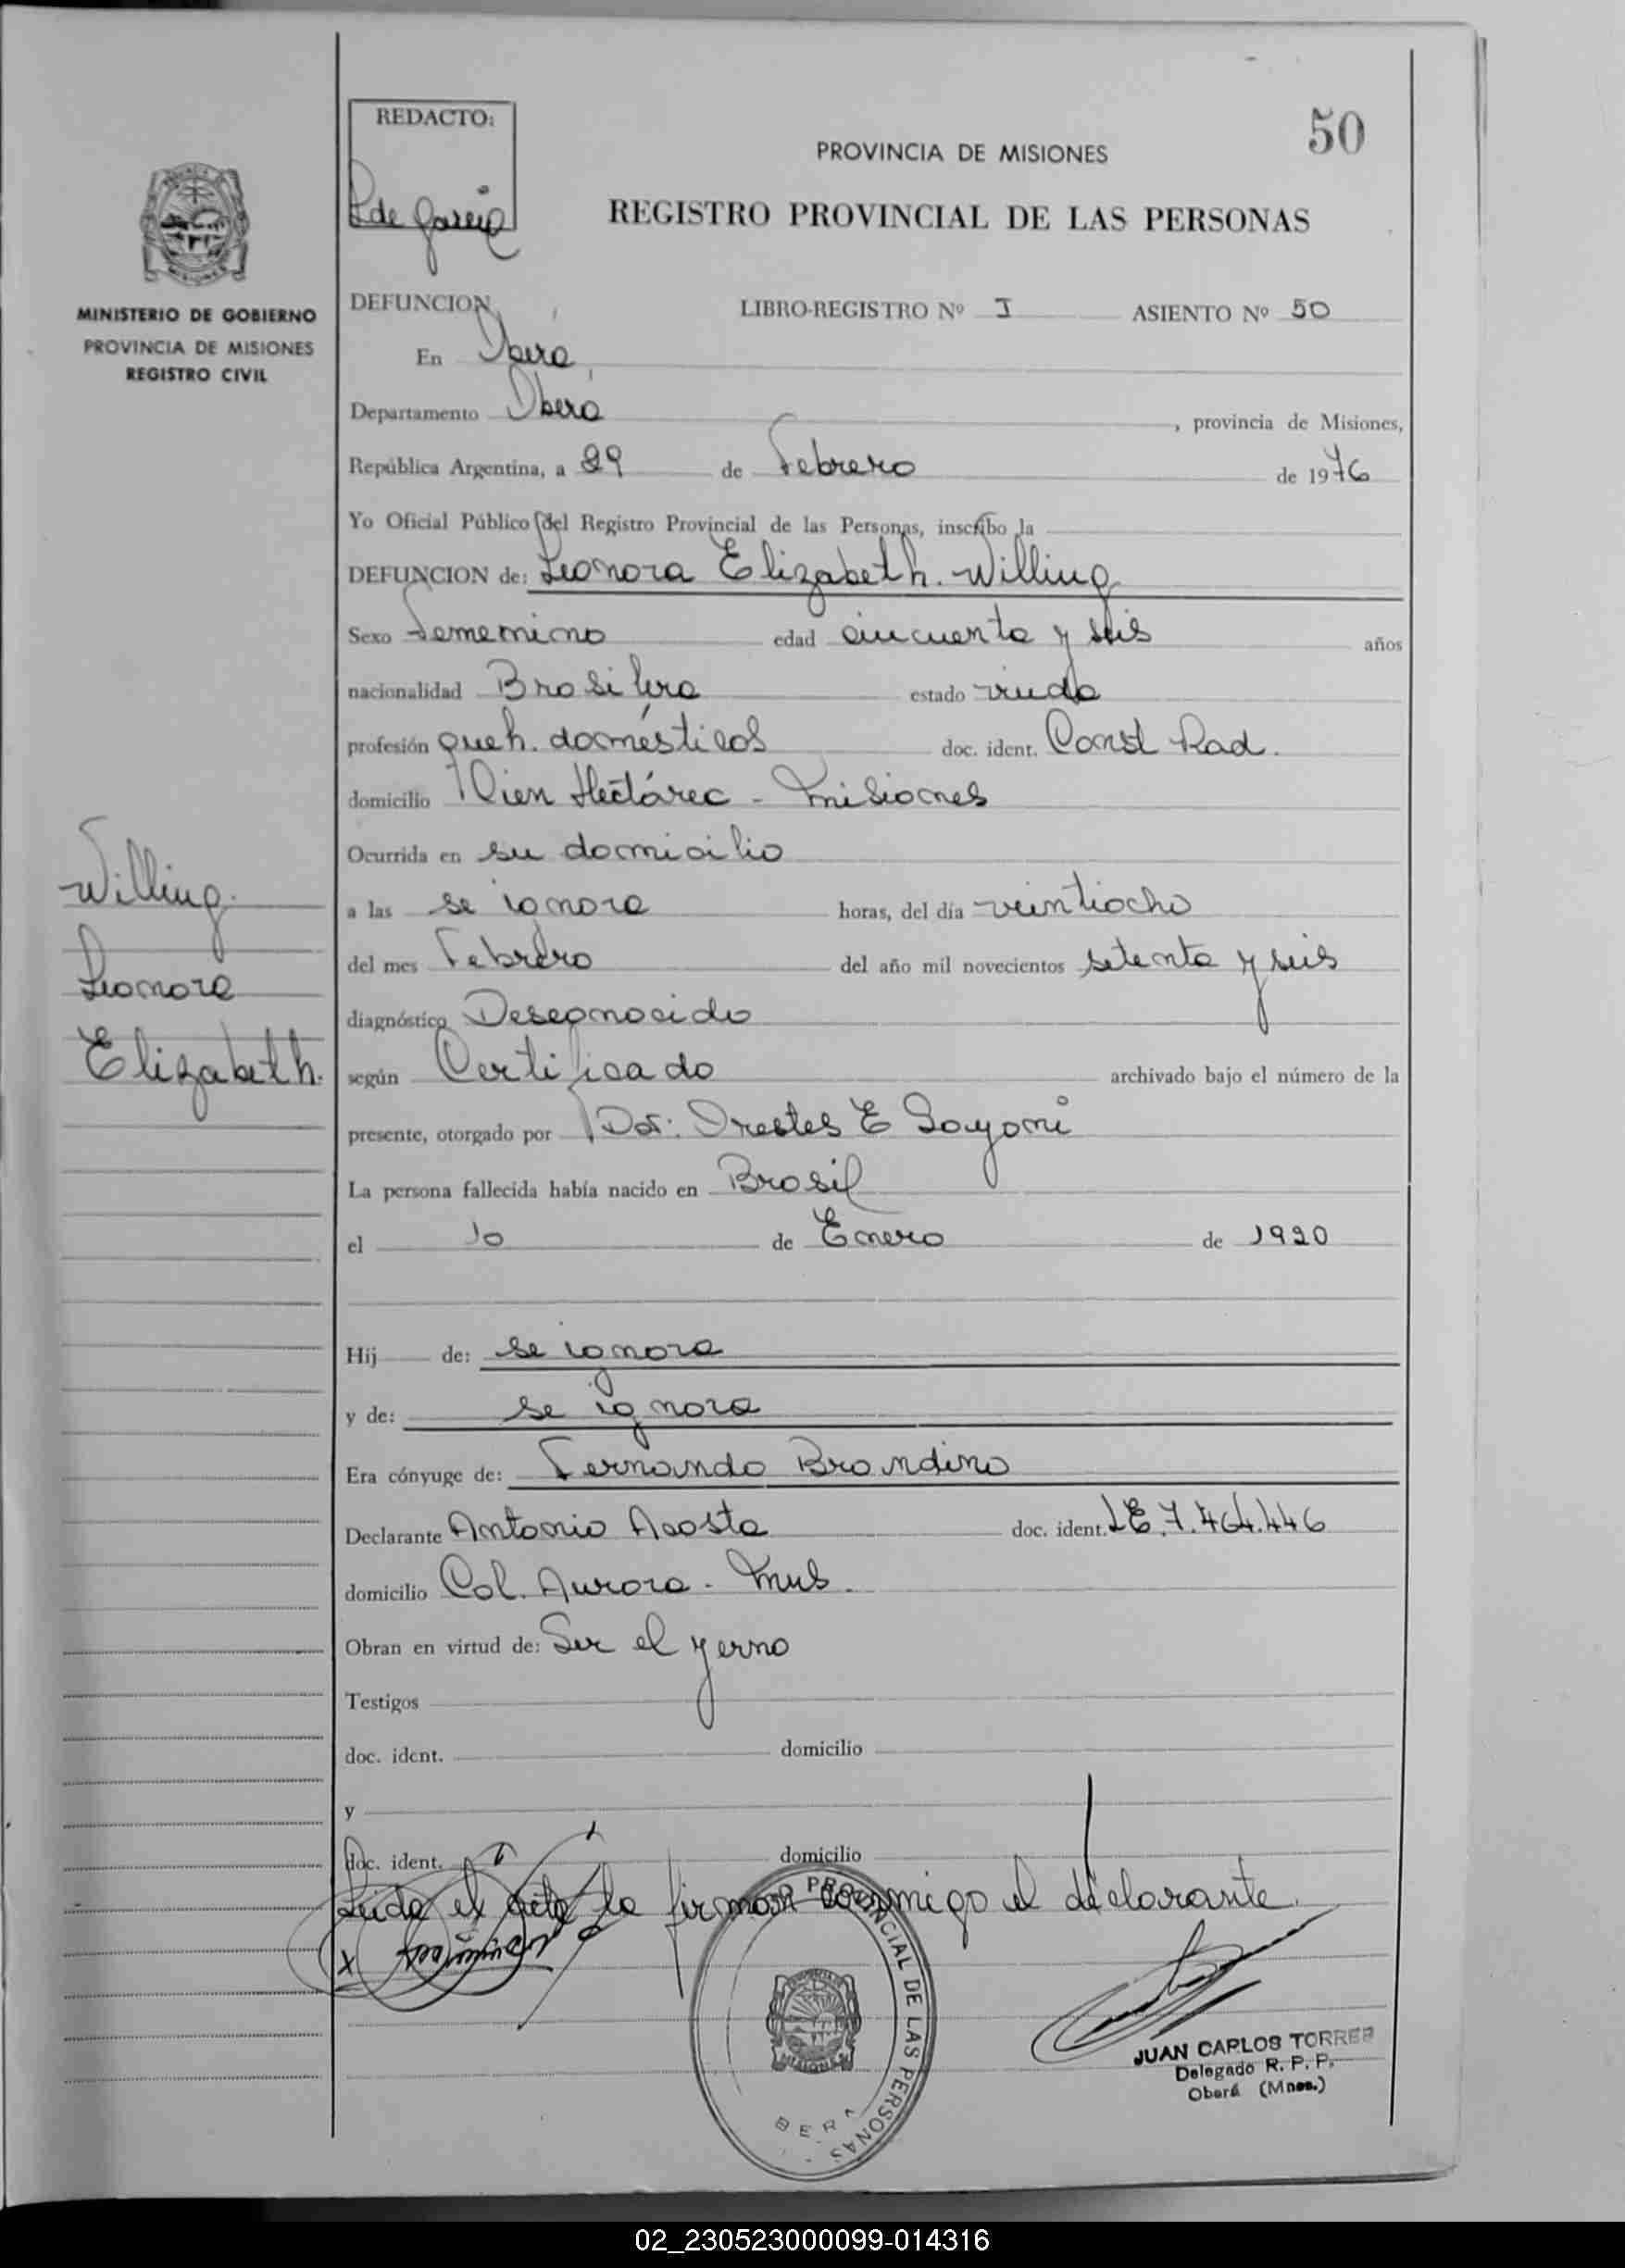 REDACTO:
L de Garcia
50
PROVINCIA DE MISIONES
REGISTRO PROVINCIAL DE LAS PERSONAS
MINISTERIO DE GOBIERNO
PROVINCIA DE MISIONES
REGISTRO CIVIL
DEFUNCION LIBRO-REGISTRO Nº I ASIENTO Nº 50
En Oberá
Departamento Oberá, provincia de Misiones,
República Argentina, a 29 de Febrero de 1976
Yo Oficial Público del Registro Provincial de las Personas, inscribo la
DEFUNCION de: Leonora Elizabeth. Willing
Sexo Femenino edad cincuenta y seis años
nacionalidad Brasilera estado viuda
profesión queh. domésticos doc. ident. Const Rad.
domicilio Cien Hectárea - Misiones
Ocurrida en su domicilio
a las se ignora horas, del día veintiocho
del mes Febrero del año mil novecientos setenta y seis
diagnóstico Desconocido
según Certificado archivado bajo el número de la
presente, otorgado por Dor: Orestes E
La persona fallecida había nacido en Brasil
el 10 de Enero de 1920
Hij de: se ignora
y de: se ignora
Era cónyuge de: Fernando Brandino
Declarante Antonio Acosta doc. ident. LE.7.464.446
domicilio Col. Aurora - Mnes.
Obran en virtud de: Ser el yerno
Testigos
doc. ident. domicilio
y
doc. ident. domicilio
Leida el acta la firman conmigo el declarante.
Willing.
Leonora
Elizabeth.
X
PROVINCIAL DE LAS PERSONAS
MISIONES
BERA
JUAN CARLOS TORRES
Delegado R. P. P.
Oberá (Mnes.)
02_230523000099-014316